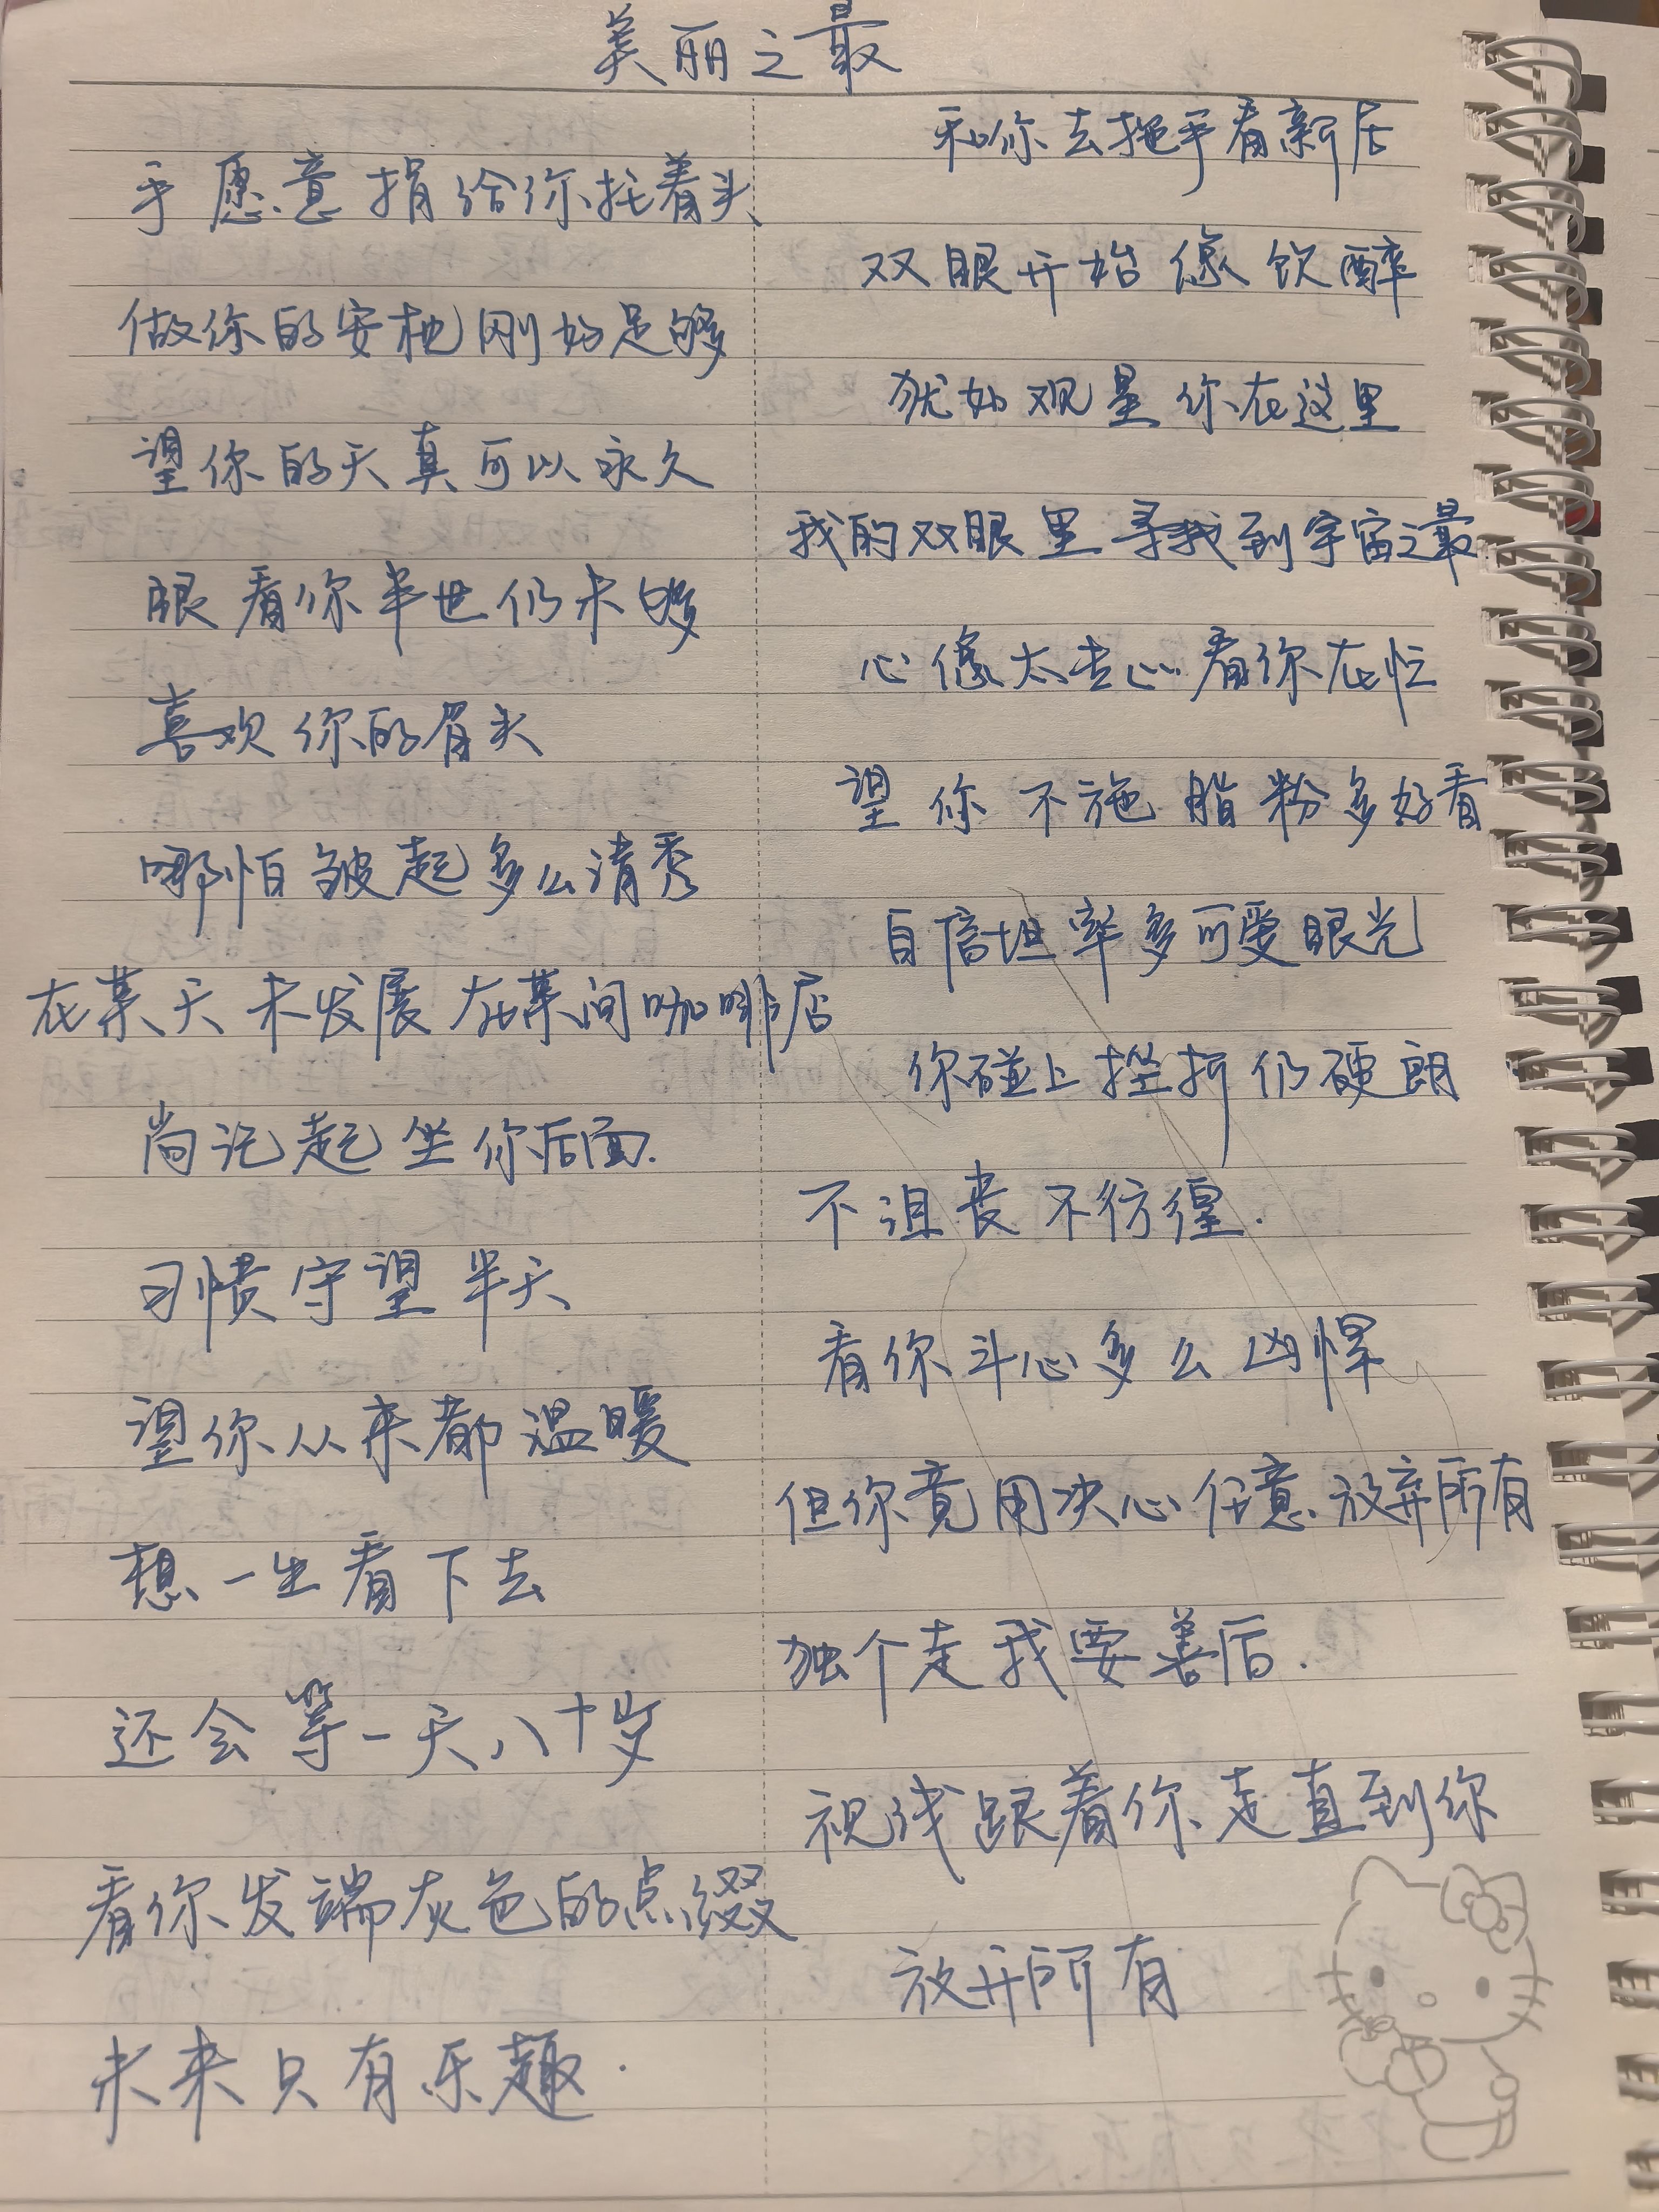 美丽之最
手愿意捐给你托着头
做你的安枕刚好足够
望你的天真可以永久
眼看你半世仍未够
喜欢你的眉头
哪怕皱起多么清秀
在某天未发展在某间咖啡店
尚记起坐你后面.
习惯守望半天
望你从来都温暖
想一生看下去
还会等一天八十岁
看你发端灰色的点缀
未来只有乐趣.
和你去拖手看新居
双眼开始像饮醉
犹如观星你在这里
我的双眼里寻找到宇宙之最
心像太专心看你在忙
望你不施脂粉多好看
自信坦率多可爱眼光
你碰上挫折仍硬朗
不沮丧不彷徨.
看你斗心多么凶悍
但你竟用决心任意放弃所有
独个走我要善后.
视线跟着你走直到你
放弃所有